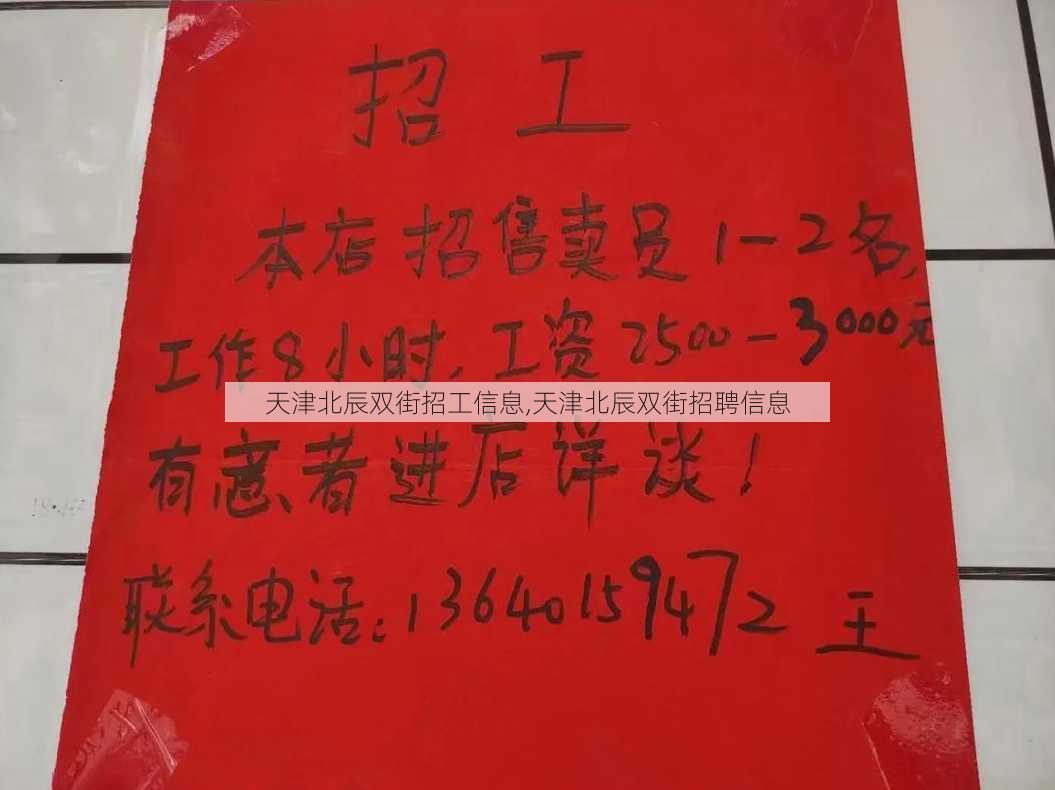 招工
本店招售卖员1-2名,
工作8小时,工资2500-3000元
天津北辰双街招工信息,天津北辰双街招聘信息
有意者进店详谈!
联系电话:13640159472 王